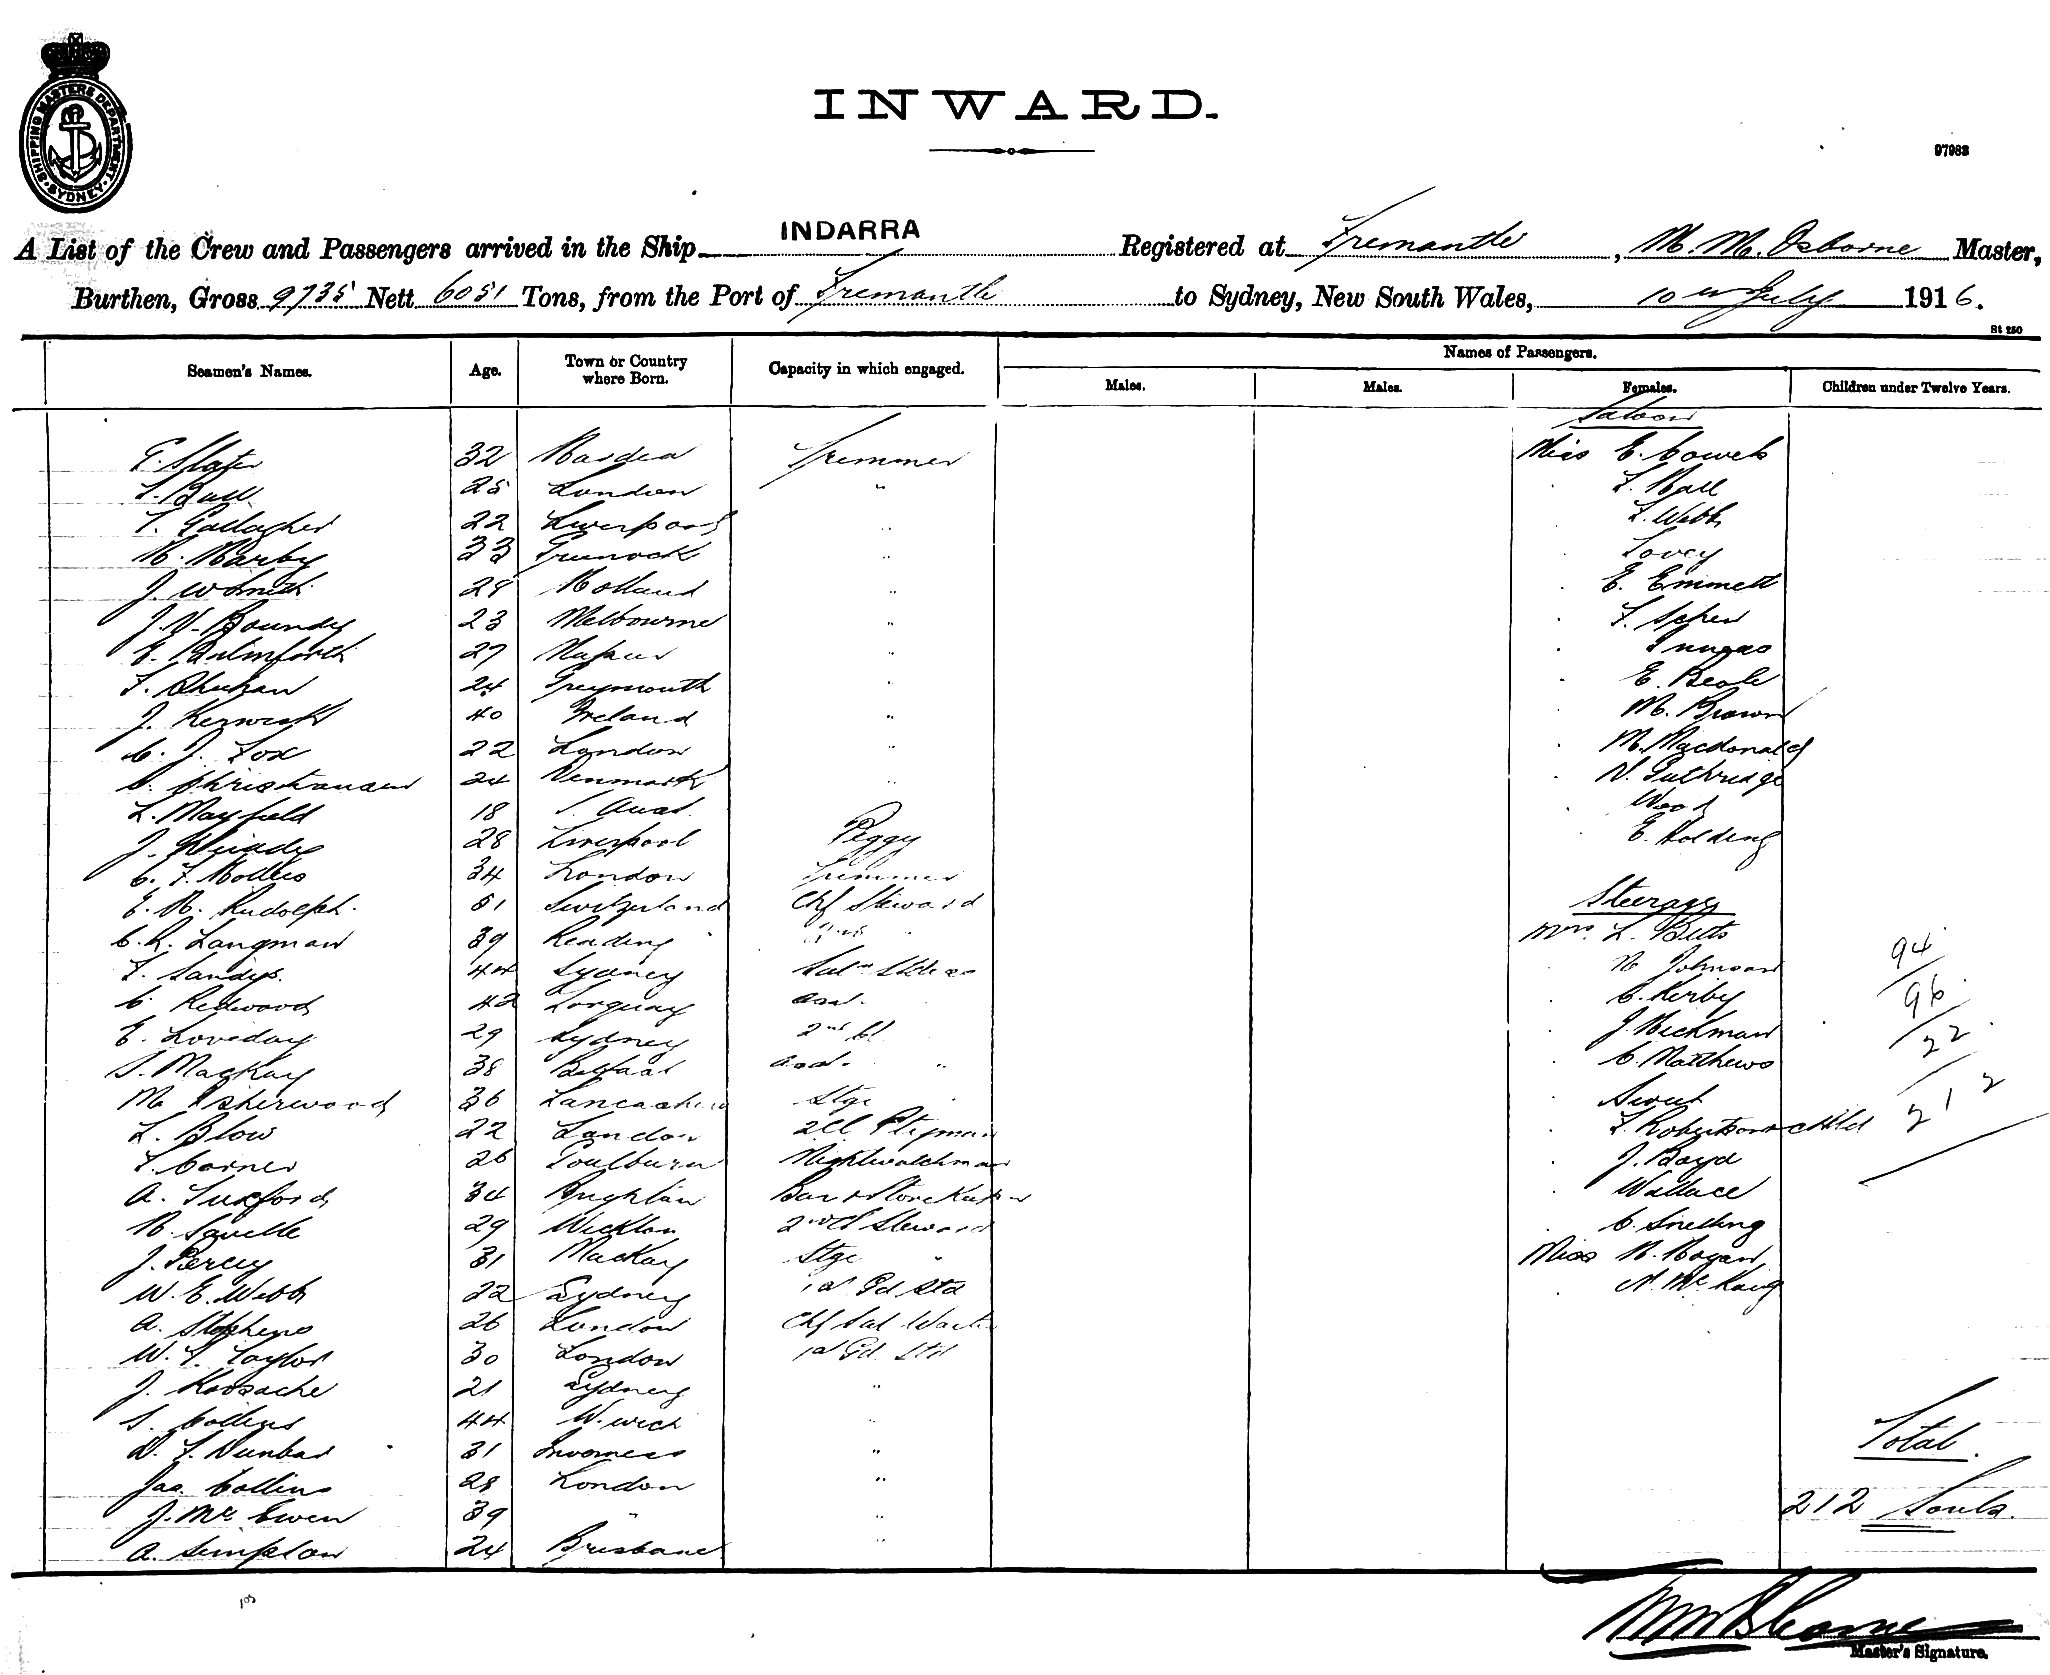 SHIPPING MASTERS DEPARTMENT SYDNEY
INWARD.
97983
A List of the Crew and Passengers arrived in the Ship INDARRA Registered at Fremantle, M. M. Osborne Master,
Burthen, Gross 9735 Nett 6051 Tons, from the Port of Fremantle to Sydney, New South Wales, 10th July 1916.
St 250
Seamen's Names. Age. Town or Country where Born. Capacity in which engaged. Names of Passengers.
Males. Males. Females. Children under Twelve Years.
Saloon
Slater 32 Trimmer Miss E.
25 London " Hall
T. Gallagher 22 Liverpool " Webb
H. Harby 33 Greenock " Lovey
J. W. Smith 28 Holland " E. Emmett
J. V. Boundy 23 Melbourne "
27 "
24 Greymouth " E. Beale
J. 40 Ireland " M. Brown
C. J. Fox 22 London " M. Macdonald
C. Christiansen 24 Denmark " V. Guthridge
L. Mayfield 18 Wood
J. 28 Liverpool Peggy E. Holding
C. F. Hollis 34 London Trimmer
E. R. Rudolph. 51 Switzerland Chf Steward Steerage
C. R. Langman 39 Reading " Mrs. L. Betts
Sandys. 44 Sydney Johnson 94
C. Redwood 42 Torquay asst. C. Kerby 96
E. Loveday 29 Sydney 2nd Cl J. Hickman 22
S. MacKay 38 Belfast asst. " C. Matthews
M Isherwood 36 Lancashire Stge " 212
L. Blow 22 London Robertson & child
Corner 26 Goulburn Nightwatchman J. Boyd
A. Tuxford 34 Brighton Bar & Storekeeper Wallace
H. Saville 29 2nd Cl Steward C. Snelling
J. Percy 31 MacKay Stge " Miss H. Hogan
W. E. Webb 22 Sydney 1st Gd Std
A. Stephens 26 London Chf Sal Waiter
W. T. Taylor 30 London 1st Gd Std
J. 21 Sydney "
S. Collins 44 W. wich "
D. F. Dunbar 31 Inverness " Total.
Jas. Collins 28 London "
J. McEwen 39 " " 212 Souls.
A. Simpson 24 Brisbane "
Master's Signature.